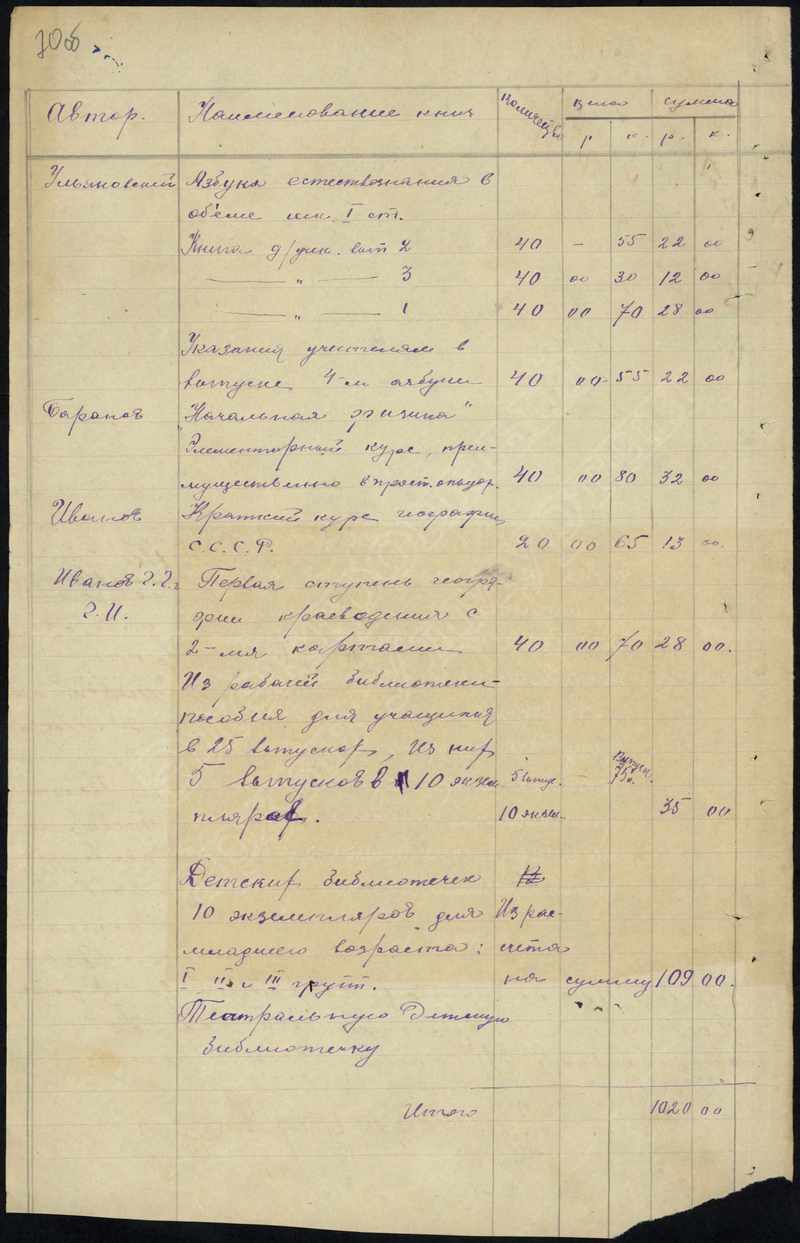 70об
Автор. Наименование книг Количество цена сумма
р к. р. к.
Ульяновский Азбука естествознания в
обеме шк. I ст.
Книга д/учен. вып 2 40 – 55 22 00
— „ — 3 40 00 30 12 00
— „ — 1 40 00 70 28 00
Указания учителям в
выпуске 4-м азбуки 40 00 55 22 00
Баранов „Начальная физика"
Элементарный курс, преи-
мущественно в прост. опытах. 40 00 80 32 00
Иванов Краткий курс географии
С.С.С.Р. 20 00 65 13 00.
Иванов Г.И. Первая ступень геогра-
Г.И. фии краеведения с
2-мя картами 40 00 70 28 00.
Из рабочей библиотеки-
пособия для учащихся
в 25 выпусках, из них
5 выпусков в 10 экзем- 5 выпус. 75к.
плярах. 10 экзем. 35 00
Детских библиотечек
10 экземпляров для Из рас-
младшего возраста: счета
I II и III групп. на сумму 109 00.
Театральную Детскую
библиотечку
Итого 1020 00